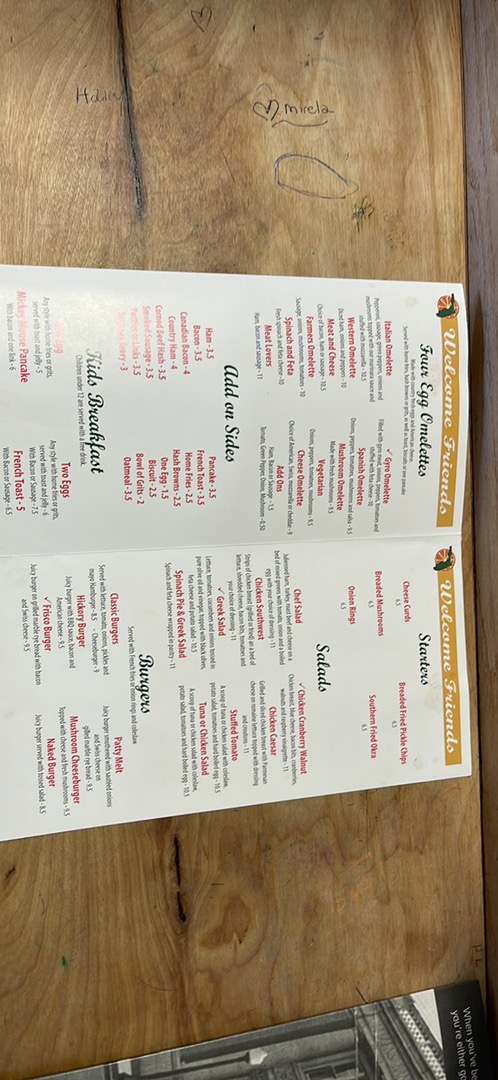 Halay
mirela
Welcome Friends
Four Egg Omelettes
Made with country fresh eggs and American cheese.
Served with home fries, hash browns or grits, as well as toast, biscuits or one pancake
Italian Omelette
Pepperoni, sausage, green peppers, onions and
mushrooms topped with our marinara sauce and
stuffed with mozzarella - 10.5
Western Omelette
Diced ham, onions and peppers - 10
Meat and Cheese
Choice of bacon, ham or sausage - 10.5
Farmers Omelette
Sausage, onions, mushrooms, tomatoes - 10
Spinach and Feta
Fresh spinach and feta cheese - 10
Meat Lovers
Ham, bacon and sausage - 11
✓ Gyro Omelette
Filled with gyro meat, onions, peppers, tomatoes and
stuffed with feta cheese - 10
Spanish Omelette
Onions, peppers, tomatoes, mushrooms and salsa - 9.5
Mushroom Omelette
Made with fresh mushrooms - 9.5
Vegetarian
Onions, peppers, tomatoes, mushrooms - 9.5
Cheese Omelette
Choice of American, Swiss, mozzarella or cheddar - 9
Add Ons
Ham, Bacon or Sausage - 1.5
Tomato, Green Pepper, Onion, Mushroom - 0.50
Add on Sides
Ham - 3.5
Bacon - 3.5
Canadian Bacon - 4
Country Ham - 4
Corned Beef Hash - 3.5
Smoked Sausage - 3.5
Patties or Links - 3.5
Pancake - 3.5
French Toast - 3.5
Home Fries - 2.5
Hash Browns - 2.5
One Egg - 1.5
Biscuit - 2.5
Bowl of Grits - 2
Oatmeal - 3.5
Kids Breakfast
Children under 12 are served with a free drink.
Any style with home fries or grits,
served with toast and jelly - 5
Mickey Mouse Pancake
With bacon and one link - 6
Two Eggs
Any style with home fries or grits,
served with toast and jelly - 6
With Bacon or Sausage - 7.5
French Toast - 5
With Bacon or Sausage - 6.5
Welcome Friends
Starters
Cheese Curds
6.5
Breaded Mushrooms
6.5
Onion Rings
6.5
Breaded Fried Pickle Chips
6.5
Southern Fried Okra
6.5
Salads
Chef Salad
Julienned ham, turkey, roast beef and cheese on a
bed of mixed greens with tomato, onion and a boiled
egg with your choice of dressing - 11
Chicken Southwest
Strips of chicken breast (grilled or fried) on a bed of
lettuce, shredded cheese, bacon bits, tomatoes and
your choice of dressing - 11
✓ Greek Salad
Lettuce, tomatoes, cucumbers and onions tossed in
pure olive oil and vinegar, topped with black olives,
feta cheese and potato salad - 10.5
Spinach Pie & Greek Salad
Spinach and feta cheese wrapped in pastry - 11
✓ Chicken Cranberry Walnut
Chicken breast, blue cheese, bacon bits, cranberries,
walnuts and raspberry vinaigrette - 11
Chicken Caesar
Grilled and diced chicken breast with Parmesan
cheese on romaine lettuce topped with dressing
and croutons - 11
Stuffed Tomato
A scoop of tuna or chicken salad with coleslaw,
potato salad, tomatoes and hard boiled egg - 10.5
Tuna or Chicken Salad
A scoop of tuna or chicken salad with coleslaw,
potato salad, tomatoes and hard boiled egg - 10.5
Burgers
Served with french fries or onion rings and coleslaw
Classic Burgers
Served with lettuce, tomato, onions, pickles and
mayo Hamburger - 8.5 - Cheeseburger - 9
Hickory Burger
Juicy burger with BBQ sauce, bacon and
American cheese - 9.5
✓ Frisco Burger
Juicy burger on grilled marble rye bread with bacon
and Swiss cheese - 9.5
Patty Melt
Juicy burger smothered with sautéed onions
and Swiss cheese on
grilled marble rye bread - 9.5
Mushroom Cheeseburger
Topped with cheese and fresh mushrooms - 9.5
Naked Burger
Juicy burger served with tossed salad - 8.5
When you've be
you're either go